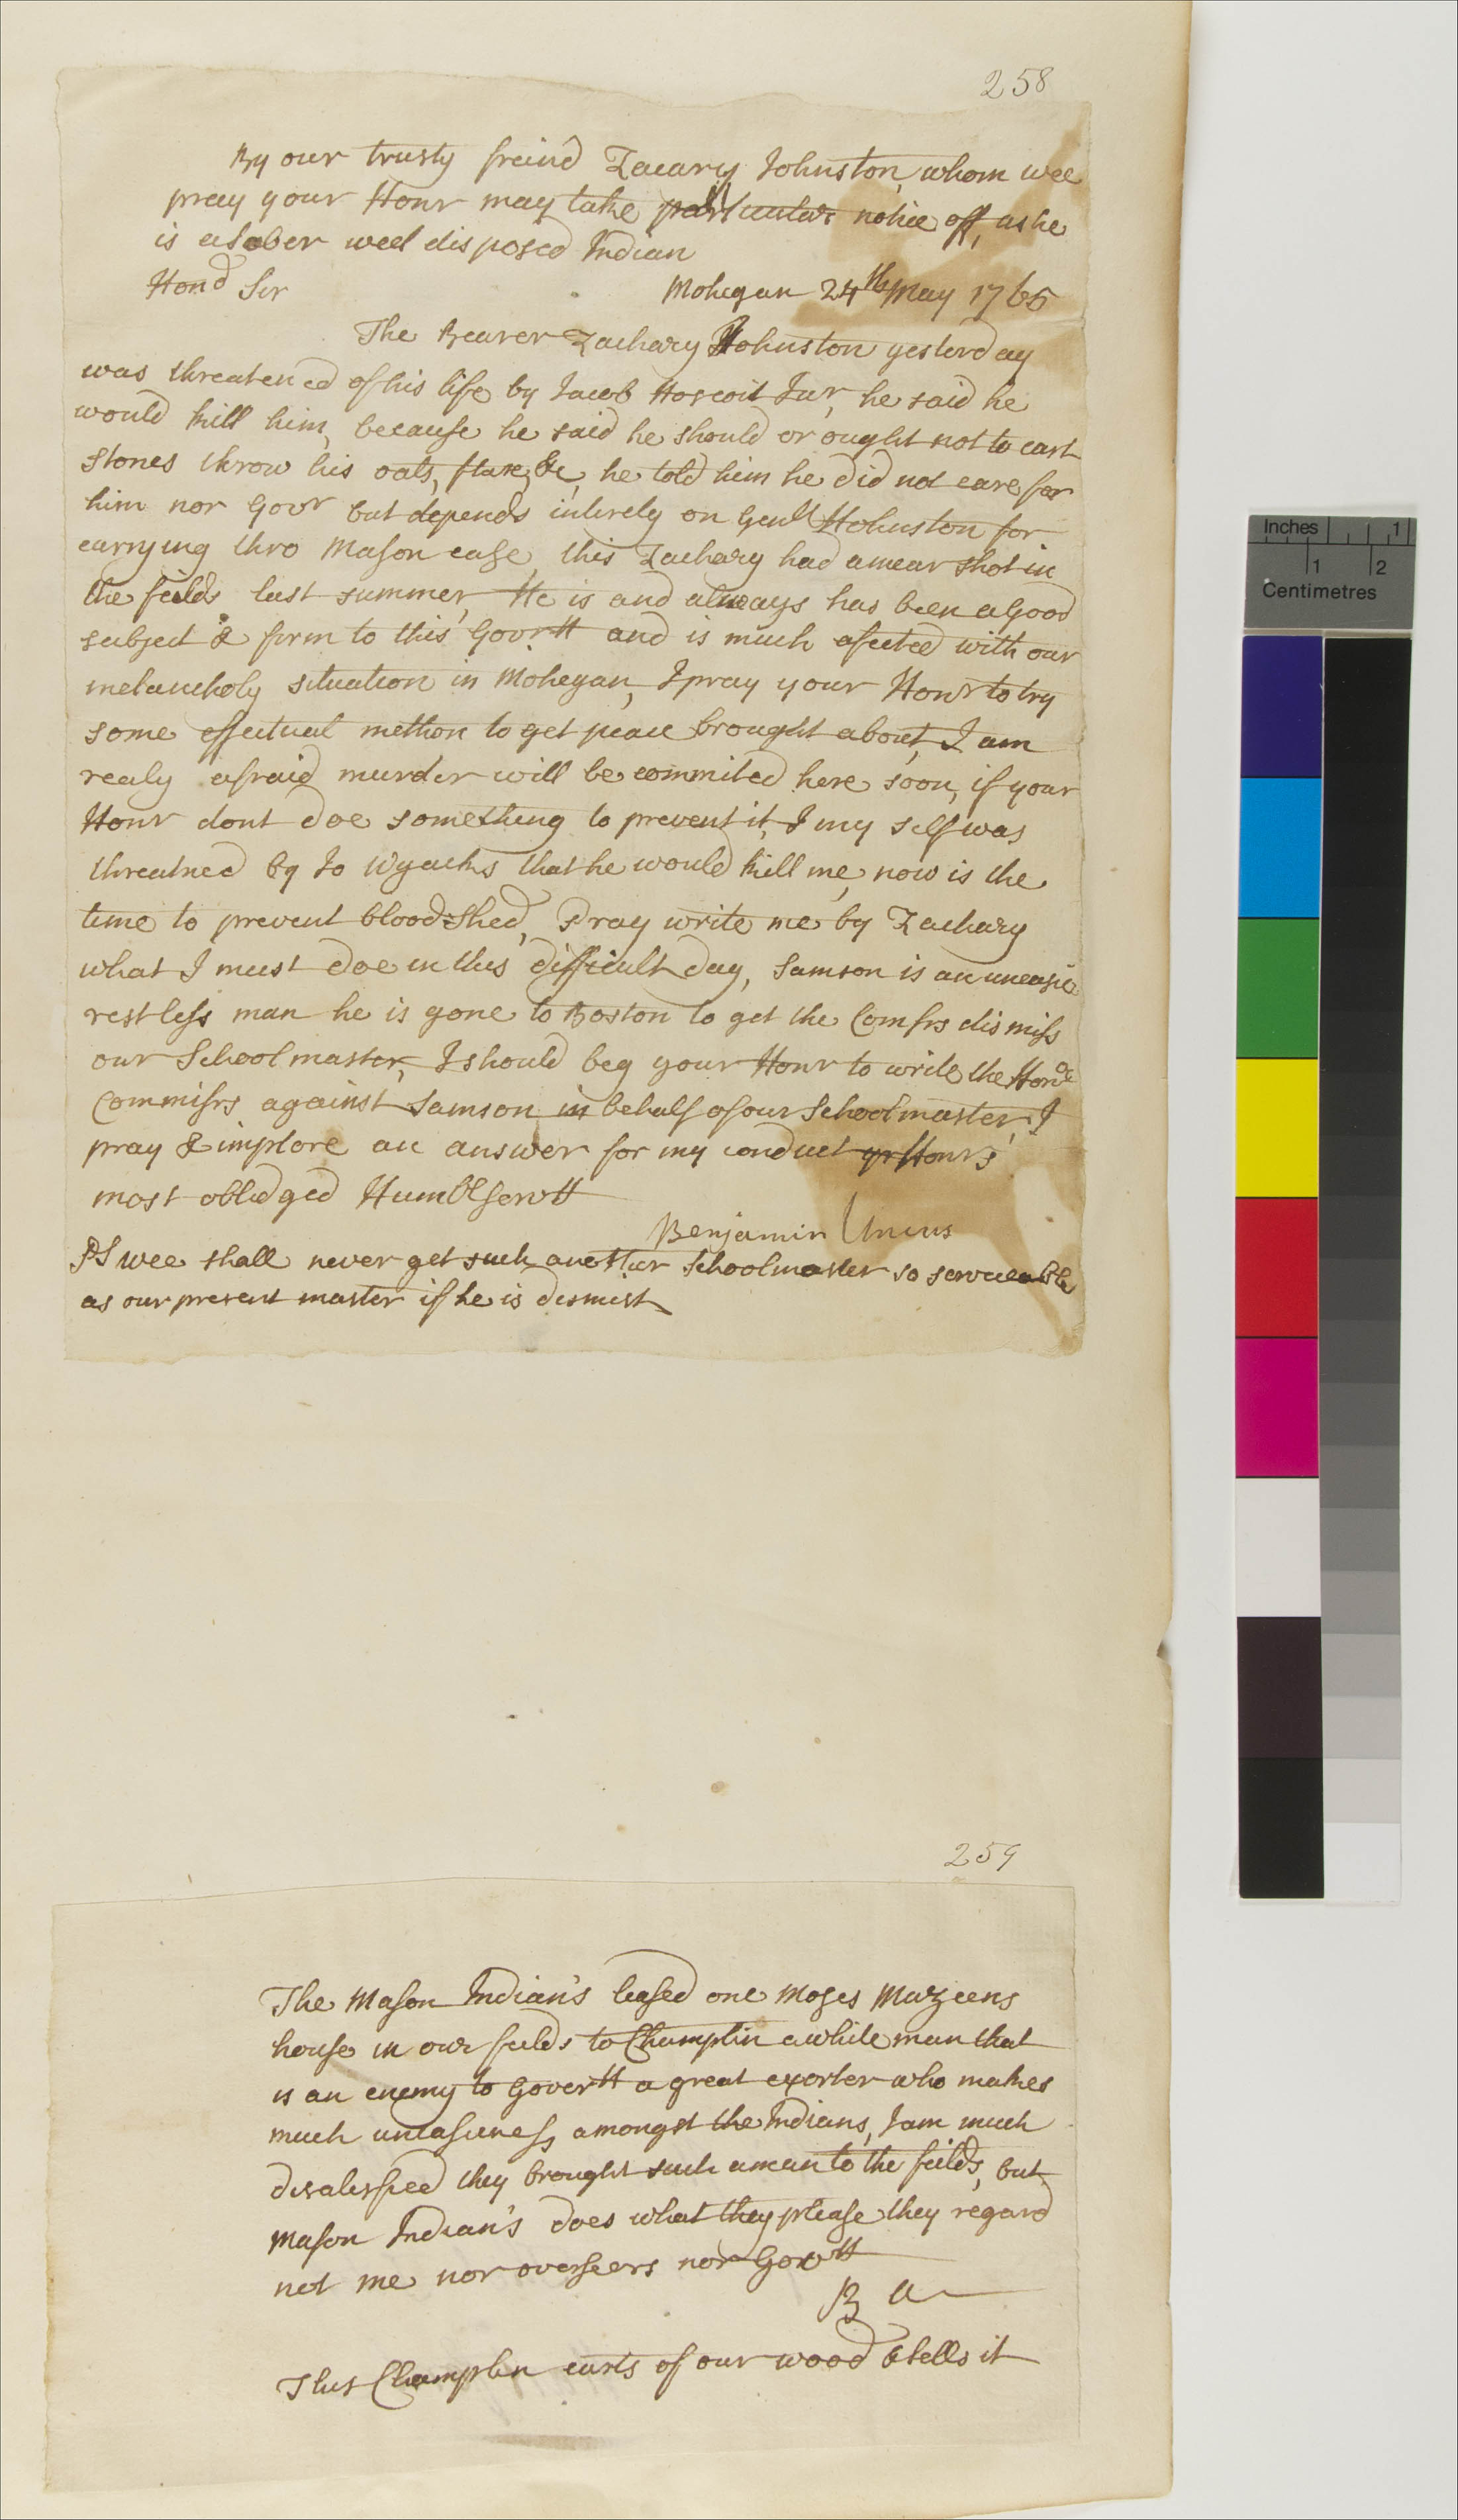 258
By our trusty freind Zacary Johnston, whom wee
pray your Honr may take particular notice off, as he
is a sober well disposed Indian
Hond Sir Mohegan 24th May 1765
The Bearer Zachary Johnston yesterday
was threatened of his life by Jacob Hoscoit Jur, he said he
would kill him, because he said he should or ought not to cart
stones throw his oats, flax, &c, he told him he did not care for
him nor Govr but depends intirely on Genll Johnston for
carrying thro Mason case, this Zachary had a mear shot in
the feilds last summer, He is and always has been a Good
subject & firm to this Govrtt and is much afected with our
melancholy situation in Mohegan, I pray your Honr to try
some effectual methon to get peace brought about, I am
realy afraid murder will be commited here soon, if your
Honr dont doe something to prevent it, I my self was
threatned by Jo Wyacks that he would kill me, now is the
time to prevent blood Shed, Pray write me by Zachary
what I must doe in this difficult day, Samson is an uneasie
restless man he is gone to Boston to get the Comsrs dismiss
our Schoolmaster, I should beg your Honr to write the Honde
Commisrs against Samson in behalf of our Schoolmaster, I
pray & implore an answer for my conduct yr Honrs
most obledged Humbl servtt
Benjamin Uncus
PS wee shall never get such another Schoolmaster so serviceable
as our present master if he is dismist
259
The Mason Indian's leased one Moses Mazeens
house in our feilds to Champlin a white man that
is an enemy to Govertt a great exorter who makes
much uneasieness amongst the Indians, I am much
disatisfied they brought such a man to the feilds, but
Mason Indian's does what they please they regard
not me nor overseers nor Govtt
B U
This Champlin carts of our wood & sells it
Inches 1
1 2
Centimetres